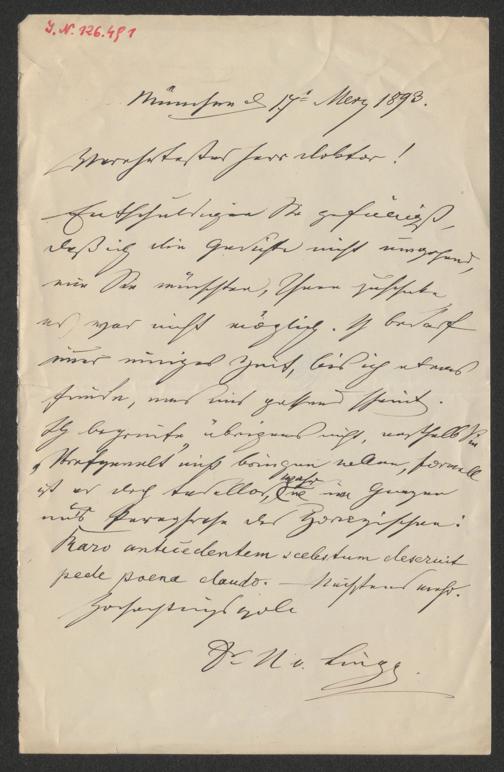 J.N. 126.491
München d 17t Merz 1893.
Verehrtester Herr Doktor!
Entschuldigen Sie gefälligst,
daß ich die Gedichte nicht umgehend,
wie Sie wünschten, Ihnen zuschickte,
es war nicht möglich. Ich bedarf
immer einiges Zeit, bis ich etwas
finde, was mir passend scheint.
Ich begreife übrigens nicht, weshalb Sie
"Strafgewalt" nicht bringen wollen, formell
ist es doch tadellos, im Ganzen
nur Paraphrase des Horazischen:
Raro antecedentem scelestum deseruit
pede poena claudo. — Nächstens mehr.
Hochachtungsvoll
Dr H v. Lingg.